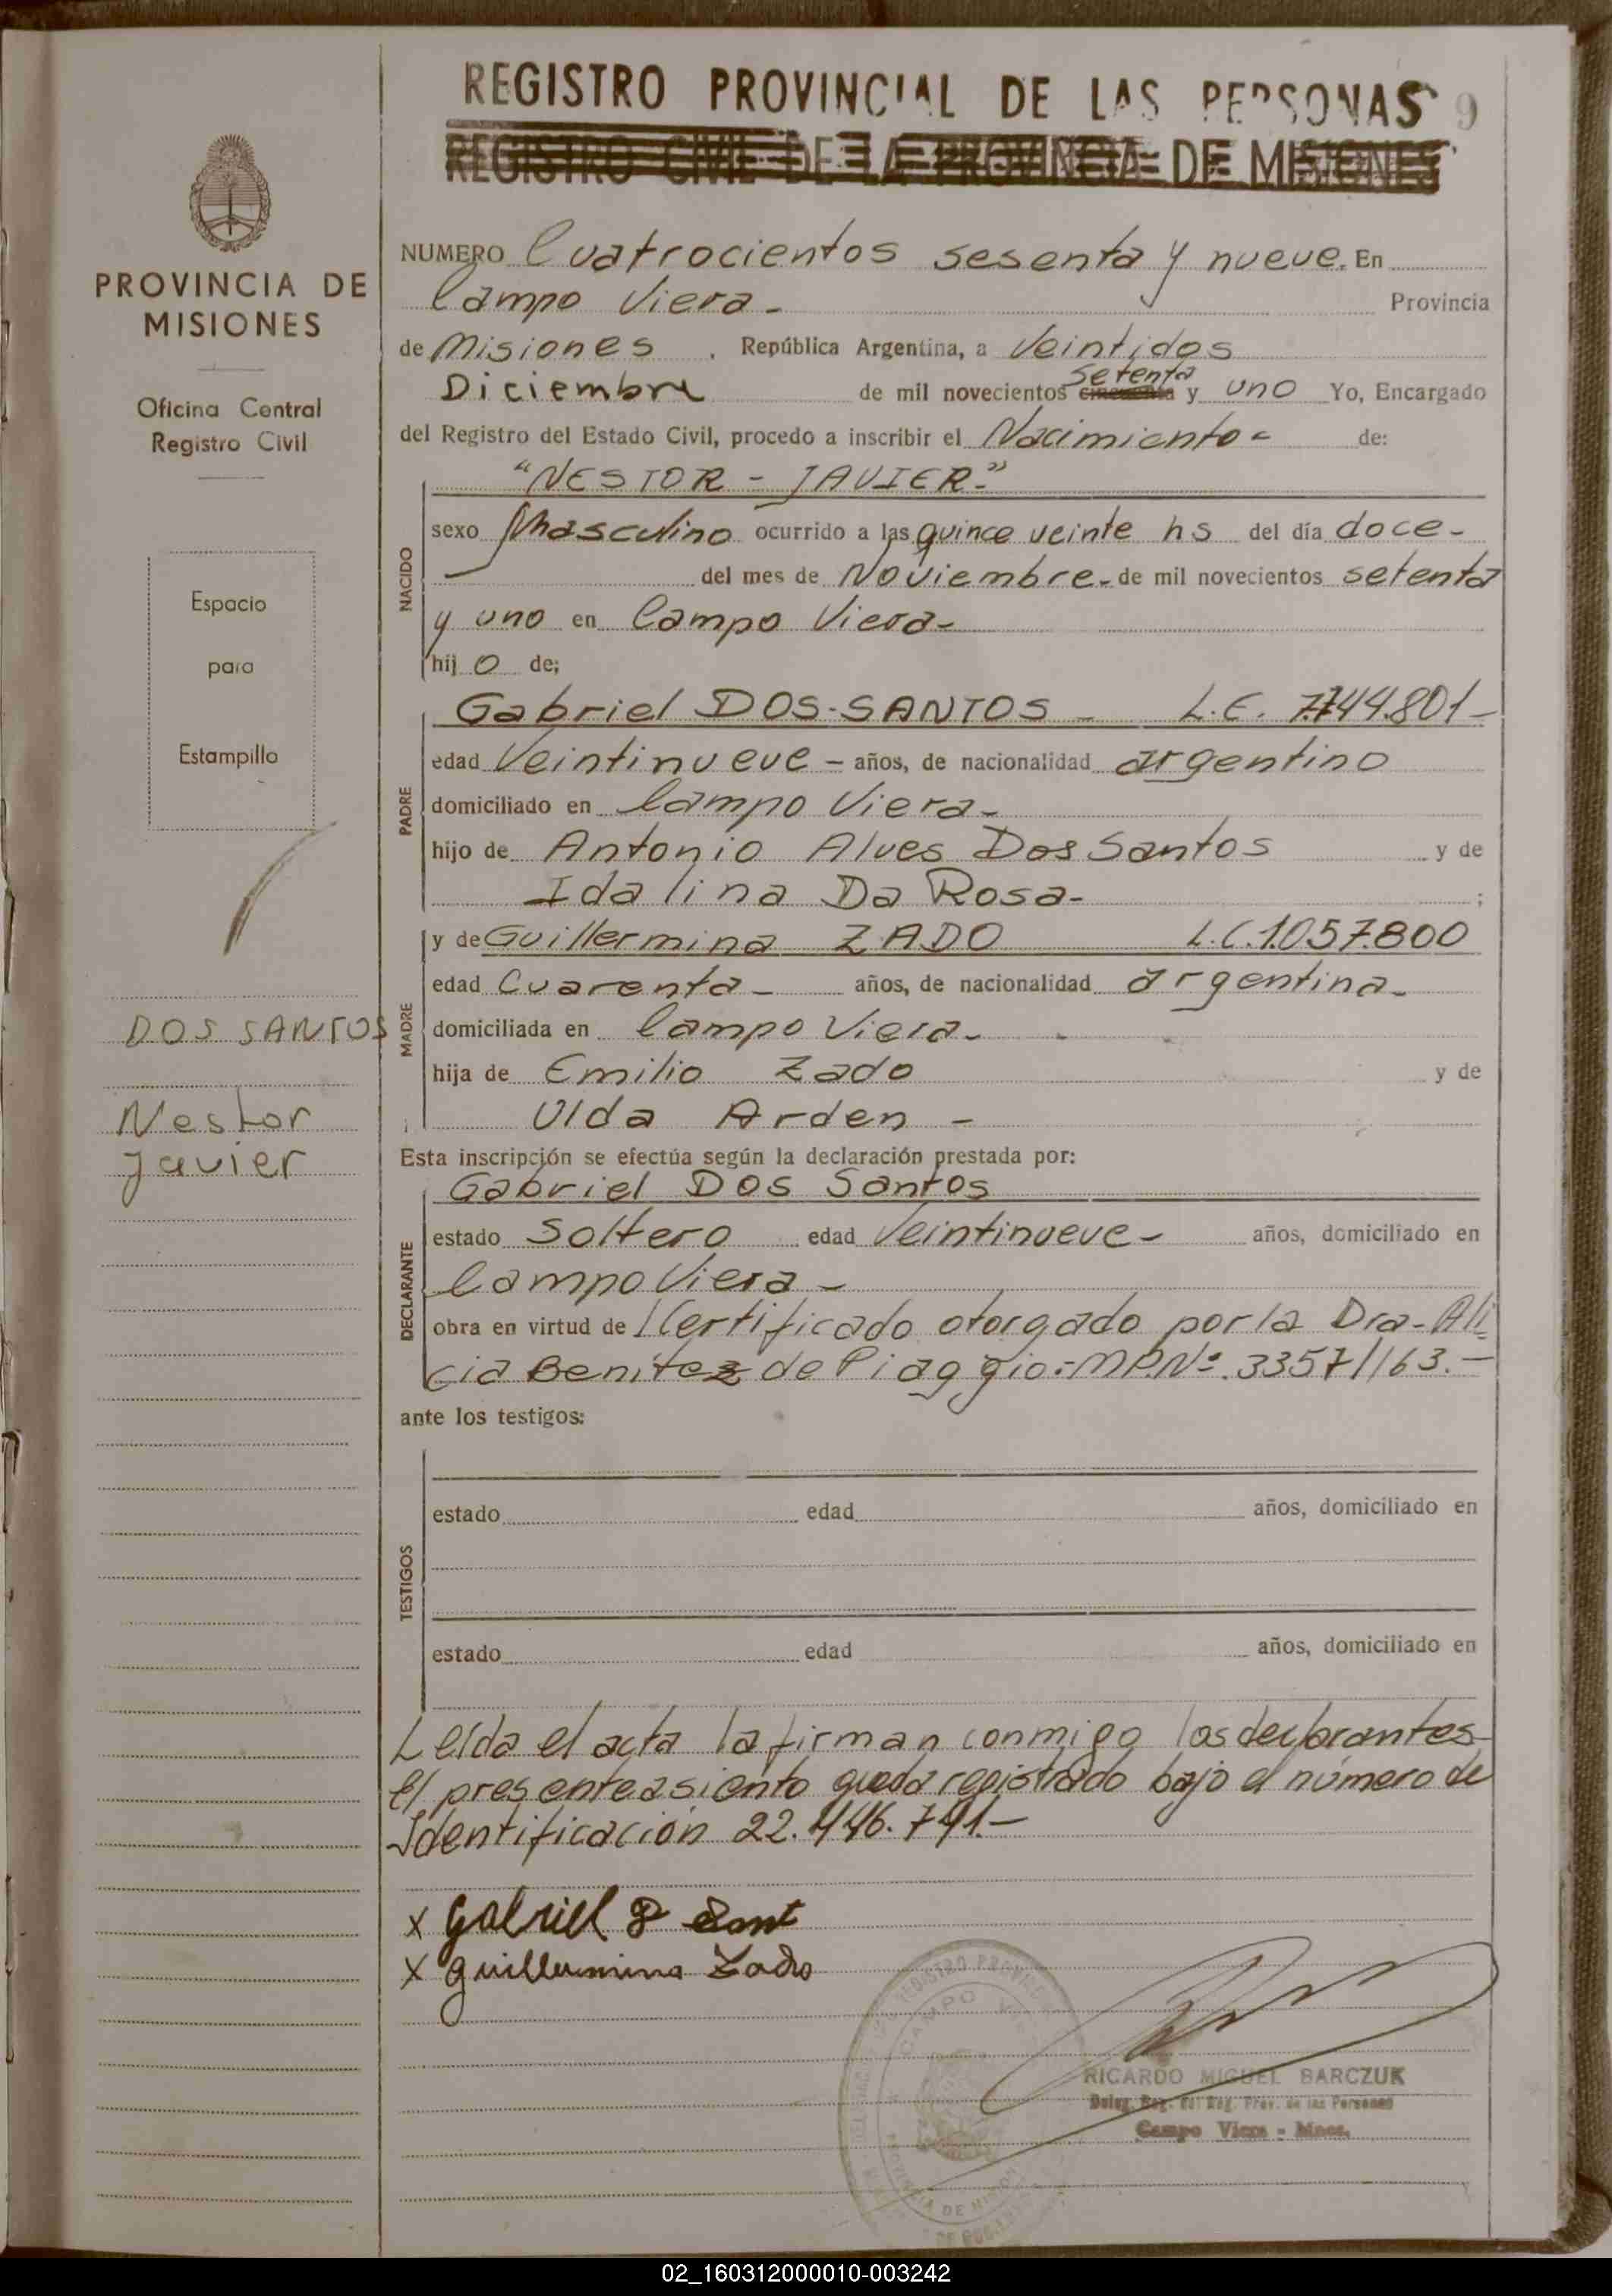 REGISTRO PROVINCIAL DE LAS PERSONAS 9
REGISTRO CIVIL DE LA PROVINCIA DE MISIONES
PROVINCIA DE
MISIONES
Oficina Central
Registro Civil
Espacio
para
Estampillo
DOS SANTOS
Nestor
Javier
NUMERO Cuatrocientos sesenta y nueve. En
Campo Viera - Provincia
de Misiones , República Argentina, a Veintidos
Diciembre de mil novecientos cincuenta setenta y uno Yo, Encargado
del Registro del Estado Civil, procedo a inscribir el Nacimiento - de:
NACIDO
"NESTOR - JAVIER"-
sexo Masculino ocurrido a las quince veinte hs del día doce -
del mes de Noviembre - de mil novecientos setenta
y uno en Campo Viera -
hij o de;
PADRE
Gabriel DOS-SANTOS - L.E. 7.744.801-
edad Veintinueve - años, de nacionalidad argentino
domiciliado en Campo Viera -
hijo de Antonio Alves Dos Santos y de
Idalina Da Rosa - ;
MADRE
y de Guillermina ZADO L.C. 1.057.800
edad Cuarenta - años, de nacionalidad argentina -
domiciliada en Campo Viera -
hija de Emilio Zado y de
Ulda Arden -
Esta inscripción se efectúa según la declaración prestada por:
DECLARANTE
Gabriel Dos Santos
estado Soltero edad Veintinueve - años, domiciliado en
Campo Viera -
obra en virtud de 1 Certificado otorgado por la Dra - Ali
cia Benitez de Piaggio.-M.P.Nº. 3357/163.-
ante los testigos:
TESTIGOS
estado edad años, domiciliado en
estado edad años, domiciliado en
Leída el acta la firman conmigo los declarantes -
El presente asiento queda registrado bajo el número de
Identificación 22.446.741.-
x Gabriel D Sant
x Guillermina Zado
RICARDO MIGUEL BARCZUK
Deleg. Reg. del Reg. Prov. de las Personas
Campo Viera - Mnes.
02_160312000010-003242